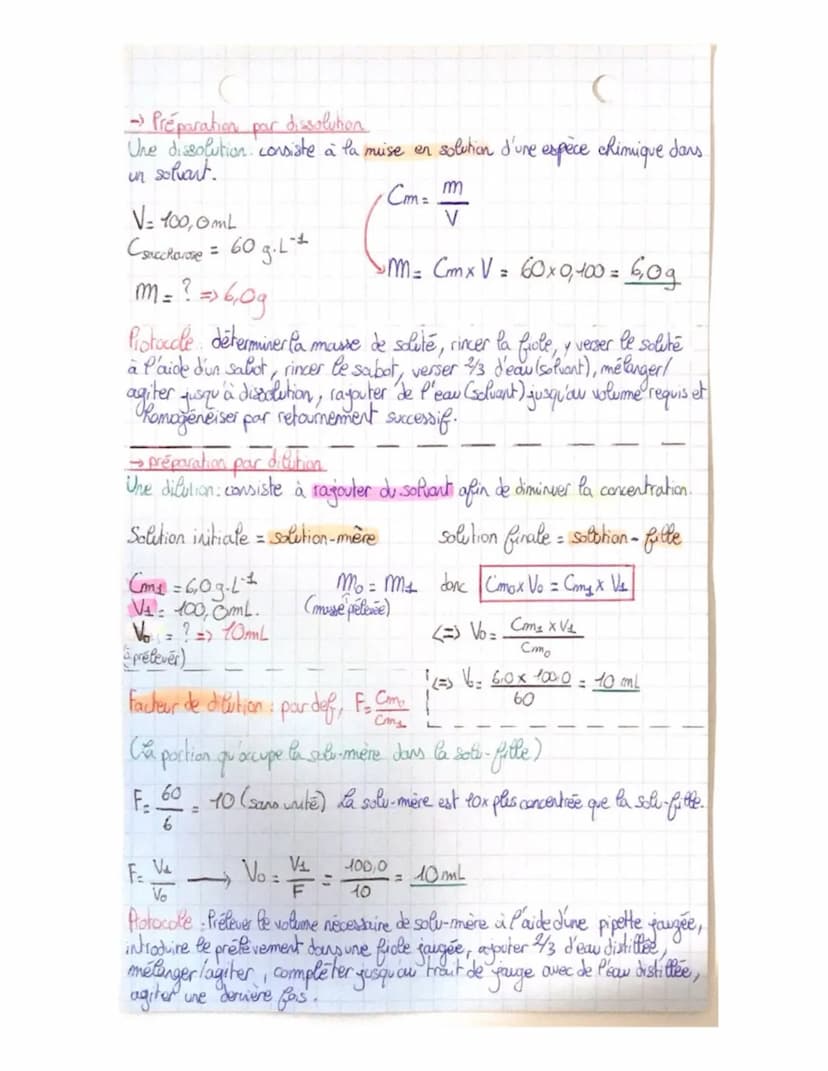 → Préparation par dissolution
Une dissolution : consiste à la muise en solution d'une espèce chimique dans
un solvant.
Cm = m / V
V = 100,0 mL
Csaccharose = 60 g.L⁻¹
m = Cm x V = 60 x 0,100 = 6,0 g
m = ? => 6,0g
Protocole : déterminer la masse de soluté, rincer la fiole, y verser le soluté
à l'aide d'un sabot, rincer le sabot, verser 2/3 d'eau (solvant), mélanger/
agiter jusqu'à dissolution, rajouter de l'eau (solvant) jusqu'au volume requis et
homogénéiser par retournement successif.
→ préparation par dilution
Une dilution : consiste à rajouter du solvant afin de diminuer la concentration.
Solution initiale = solution-mère solution finale = solution-fille
Cm1 = 6,0 g.L⁻¹ m0 = m1 donc Cm0 x V0 = Cm1 x V1
V1 = 100,0mL. (masse prélevée)
V0 = ? => 10mL <=> V0 = Cm1 x V1 / Cm0
à prélever)
<=> V0 = 6,0 x 100,0 / 60 = 10 mL
Facteur de dilution : par def, F = Cm0 / Cm1
(La portion qu'occupe la solu-mère dans la solu-fille)
F = 60 / 6 = 10 (sans unité) La solu-mère est 10x plus concentrée que la solu-fille.
F = V1 / V0 → V0 = V1 / F = 100,0 / 10 = 10 mL
Protocole : Prélever le volume nécessaire de solu-mère à l'aide d'une pipette jaugée,
introduire le prélèvement dans une fiole jaugée, ajouter 2/3 d'eau distillée,
mélanger/agiter, compléter jusqu'au trait de jauge avec de l'eau distillée,
agiter une dernière fois.